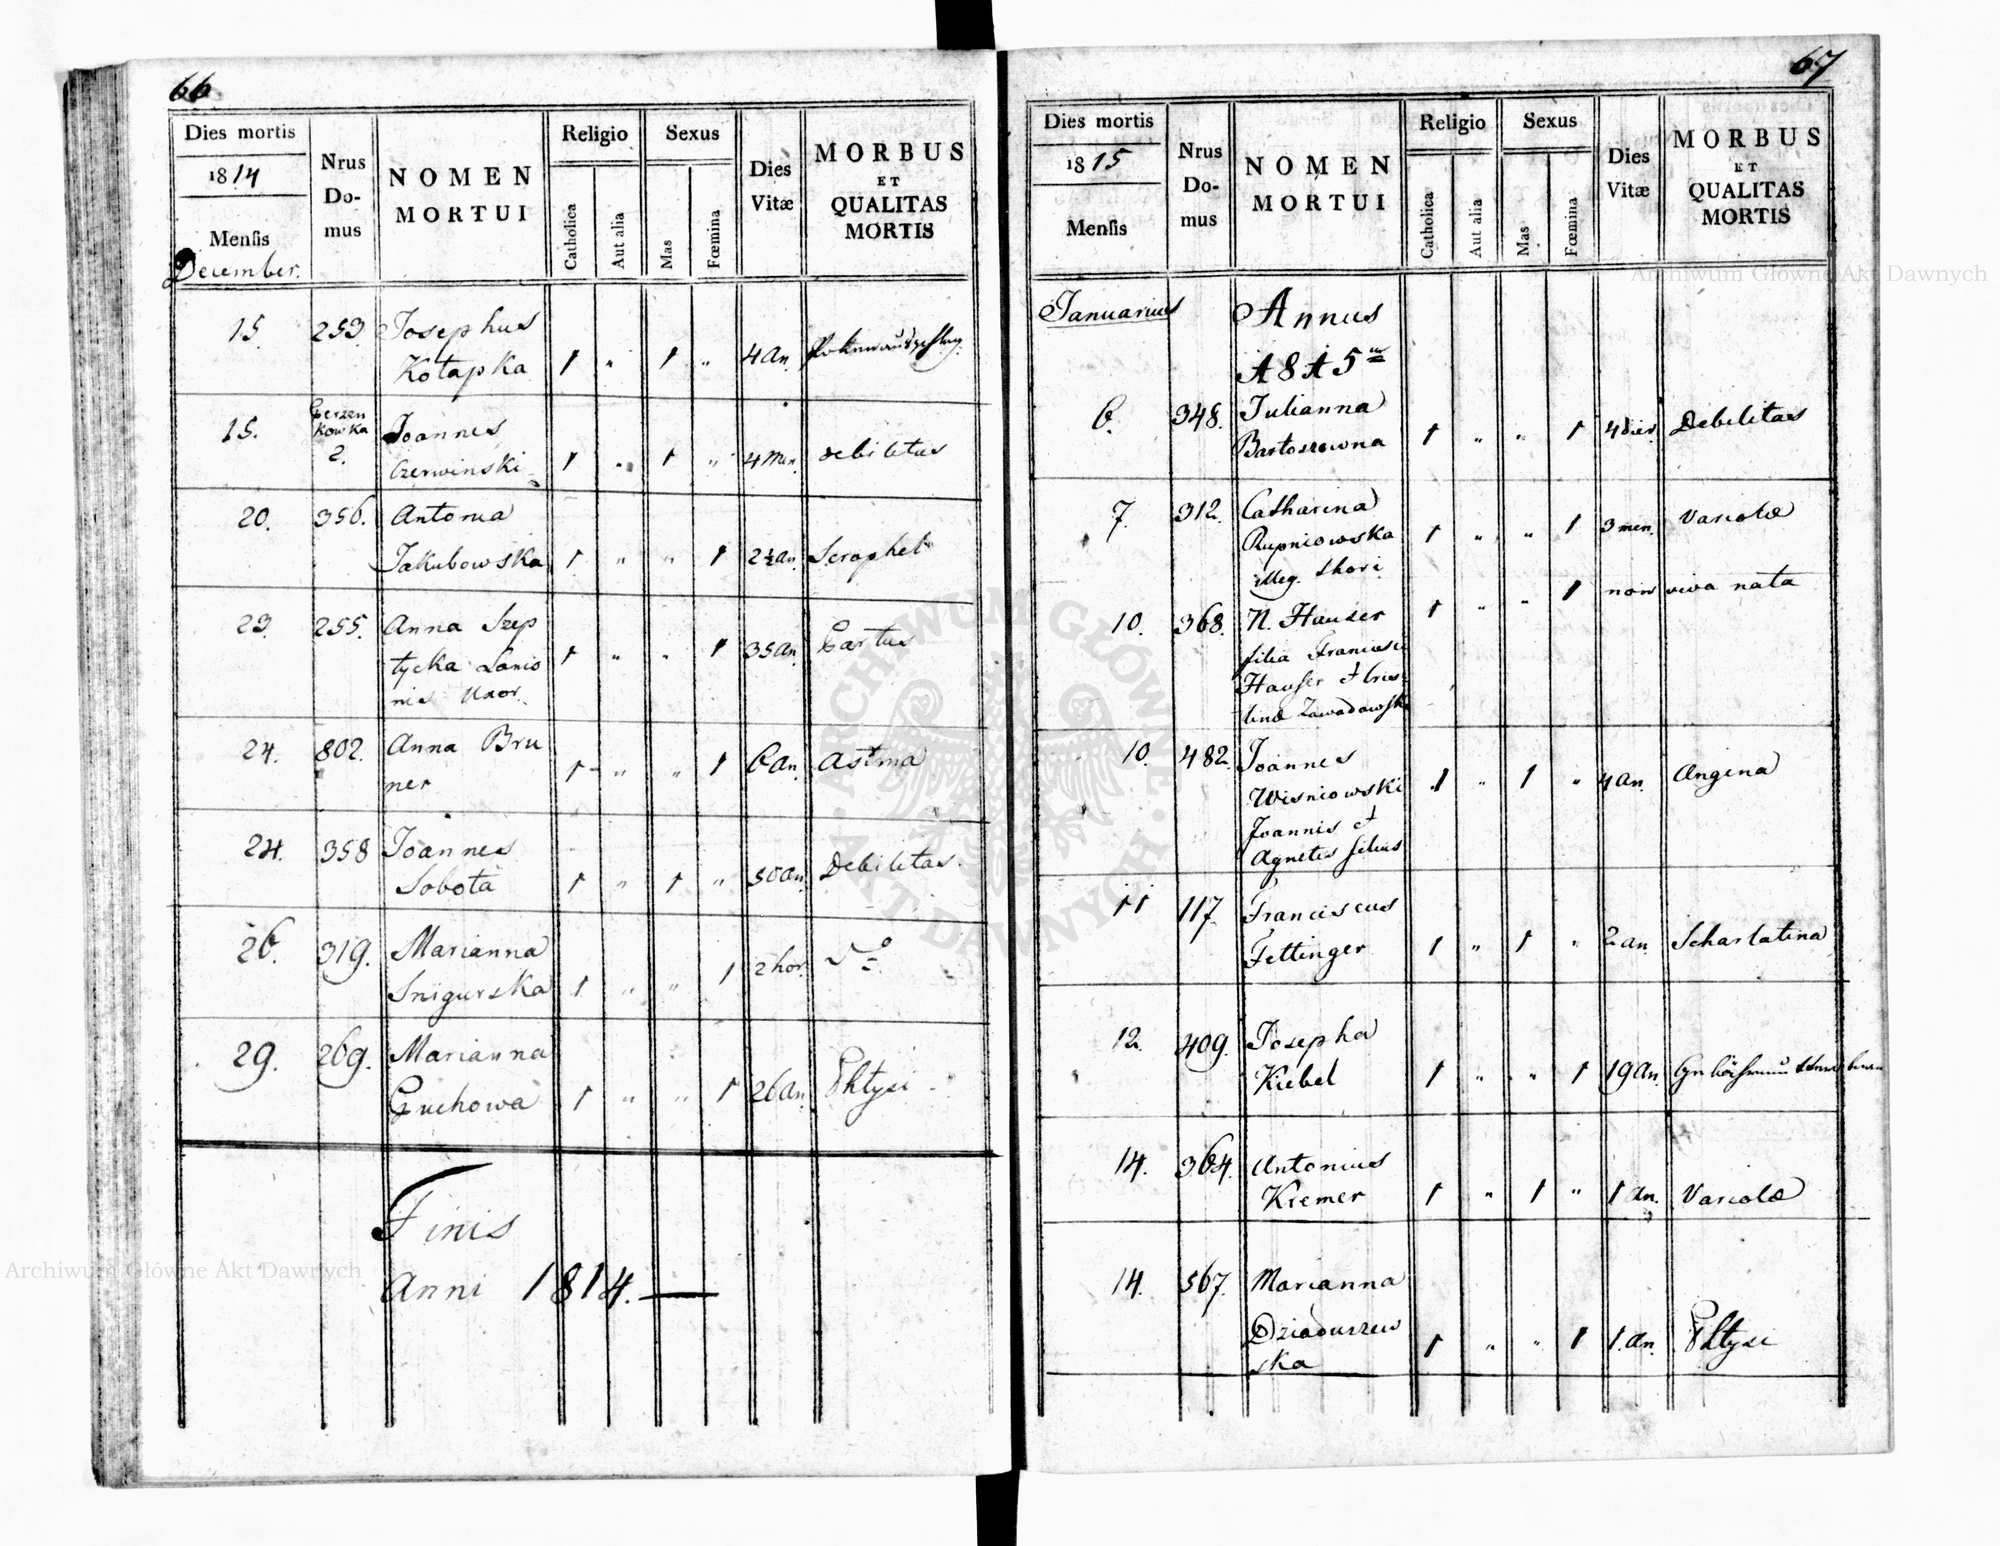 66
Dies mortis
1814
Mensis
December.
Nrus
Do-
mus
NOMEN
MORTUI
Religio
Catholica
Aut alia
Sexus
Mas
Fœmina
Dies
Vitæ
MORBUS
ET
QUALITAS
MORTIS
15. 253. Josephus
Kotapka 1 " 1 " 4 an.
15. 2. Joannes
Czerwinski 1 " 1 " 4 men. debilitas
20. 356. Antonia
Jakubowska 1 " " 1 2½ an. Scrophel
23. 255. Anna Szep
tycka Lanio
nis Uxor. 1 " " 1 35 an. Partus
24. 802. Anna Bru
ner 1 " " 1 6 an. Astma
24. 358 Joannes
Sobota 1 " 1 " 50 an. Debilitas
26. 319. Marianna
Snigurska 1 " " 1 2 hor. do
29. 269. Marianna
1 " " 1 26 an. Phtysi
Finis
Anni 1814.
67
Dies mortis
1815
Mensis
Nrus
Do-
mus
NOMEN
MORTUI
Religio
Catholica
Aut alia
Sexus
Mas
Fœmina
Dies
Vitæ
MORBUS
ET
QUALITAS
MORTIS
Januarius Annus
1815
6. 348. Julianna
Bartoszowna 1 " " 1 4 dier. Debilitas
7. 312. Catharina
Rupniowska
illeg. thori 1 " " 1 3 men. Variolæ
10. 368. N. Hauser
filia Francisci
Hauser et Chris-
tinæ Zawadowska 1 " " 1 non viva nata
10. 482. Joannes
Wisniowski
Joannis et
Agnetis filius 1 " 1 " 4 an. Angina
11 117. Franciscus
Fettinger 1 " 1 " 2 an. Scharlatina
12. 409. Josepha
Kiebel 1 " " 1 19 an.
14. 364. Antonius
Kremer 1 " 1 " 1 an. Variolæ
14. 567. Marianna
Dziaduszew
ska 1 " " 1 1. an. Phtysi
Archiwum Główne Akt Dawnych
Archiwum Główne Akt Dawnych
ARCHIWUM GŁÓWNE
AKT DAWNYCH